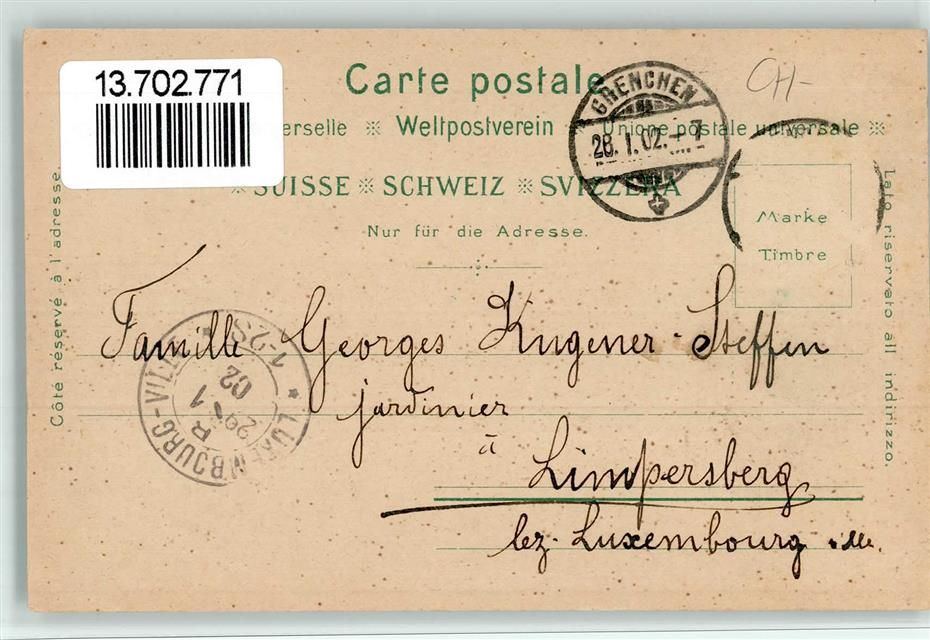 13.702.771
Carte postale
CH-
erselle ※ Weltpostverein ※ Unione postale universale ※
※ SUISSE ※ SCHWEIZ ※ SVIZZERA
Nur für die Adresse.
GRENCHEN
28. I. 02. - 7
Marke
Timbre
Côté réservé à l'adresse.
Lato riservato all indirizzo.
Famille Georges Kugener-Steffen
jardinier
à
Limpersberg
bez. Luxembourg
LUXEMBOURG-VILLE
1-2S
02
1
29
R